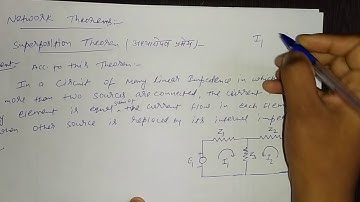 Network Theorems-
Superposition Theorem (अध्यारोपण प्रमेय)- I₁
ment- Acc to this Theorem-
In a Circuit of Many Linear Impedence in which
more than two sources are connected, the current
element is equal sum of the current flow in each Elem
other source is replaced by its internal impe
Z₁ Z₂
E₁ I₁ Z₃ I₂